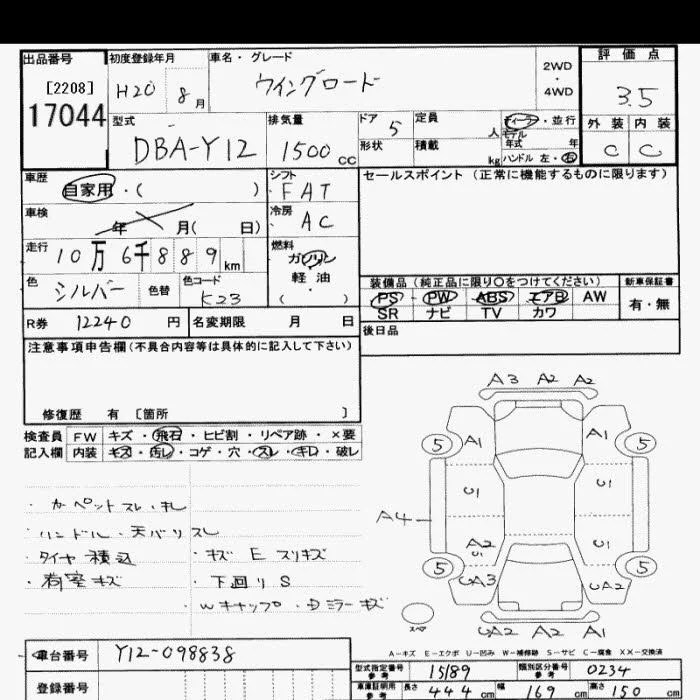 出品番号 初度登録年月 車名・グレード 2WD ・ 4WD 評価点
[2208] H20 8月 ウイングロード 3.5
17044
型式 排気量 ドア 定員 ディーラー・並行
DBA-Y12 1500cc 5 人 モデル年式 年 外装 内装
形状 積載 kg ハンドル 左・右 C C
車歴 自家用・( ) シフト FAT セールスポイント (正常に機能するものに限ります)
車検 年 月( 日) 冷房 AC
走行 10万6千889km 燃料 ガソリン
軽・油
( )
色 シルバー 色替 色コード K23
装備品(純正品に限り○をつけてください) 新車保証書
PS PW ABS エアB AW 有・無
SR ナビ TV カワ
R券 12240円 名変期限 月 日 後日品
注意事項申告欄(不具合内容等は具体的に記入して下さい)
修復歴 有 [箇所 ]
検査員 FW キズ・飛石・ヒビ割・リペア跡・×要
記入欄 内装 キズ・汚レ・コゲ・穴・スレ・キレ・破レ
・カーペットスレ・キレ
・ハンドル・天バリスレ
・タイヤ積込 ・キズ E スリキズ
・荷室キズ ・下回りS
・Wキャップ・Dミラーキズ
A3 A2 A2
5 A1 A1 5
U1 U1
A4
A2 U1 U1
5 UA3 UA2 5
スペア UA2 A2 A1
A-キズ E-エクボ U-凹み W-補修跡 S-サビ C-腐食 XX-交換済
車台番号 Y12-098838
型式指定番号 参考 15189 類別区分番号 参考 0234
登録番号 車庫証明用 参考 長さ 444cm 幅 169cm 高さ 150cm